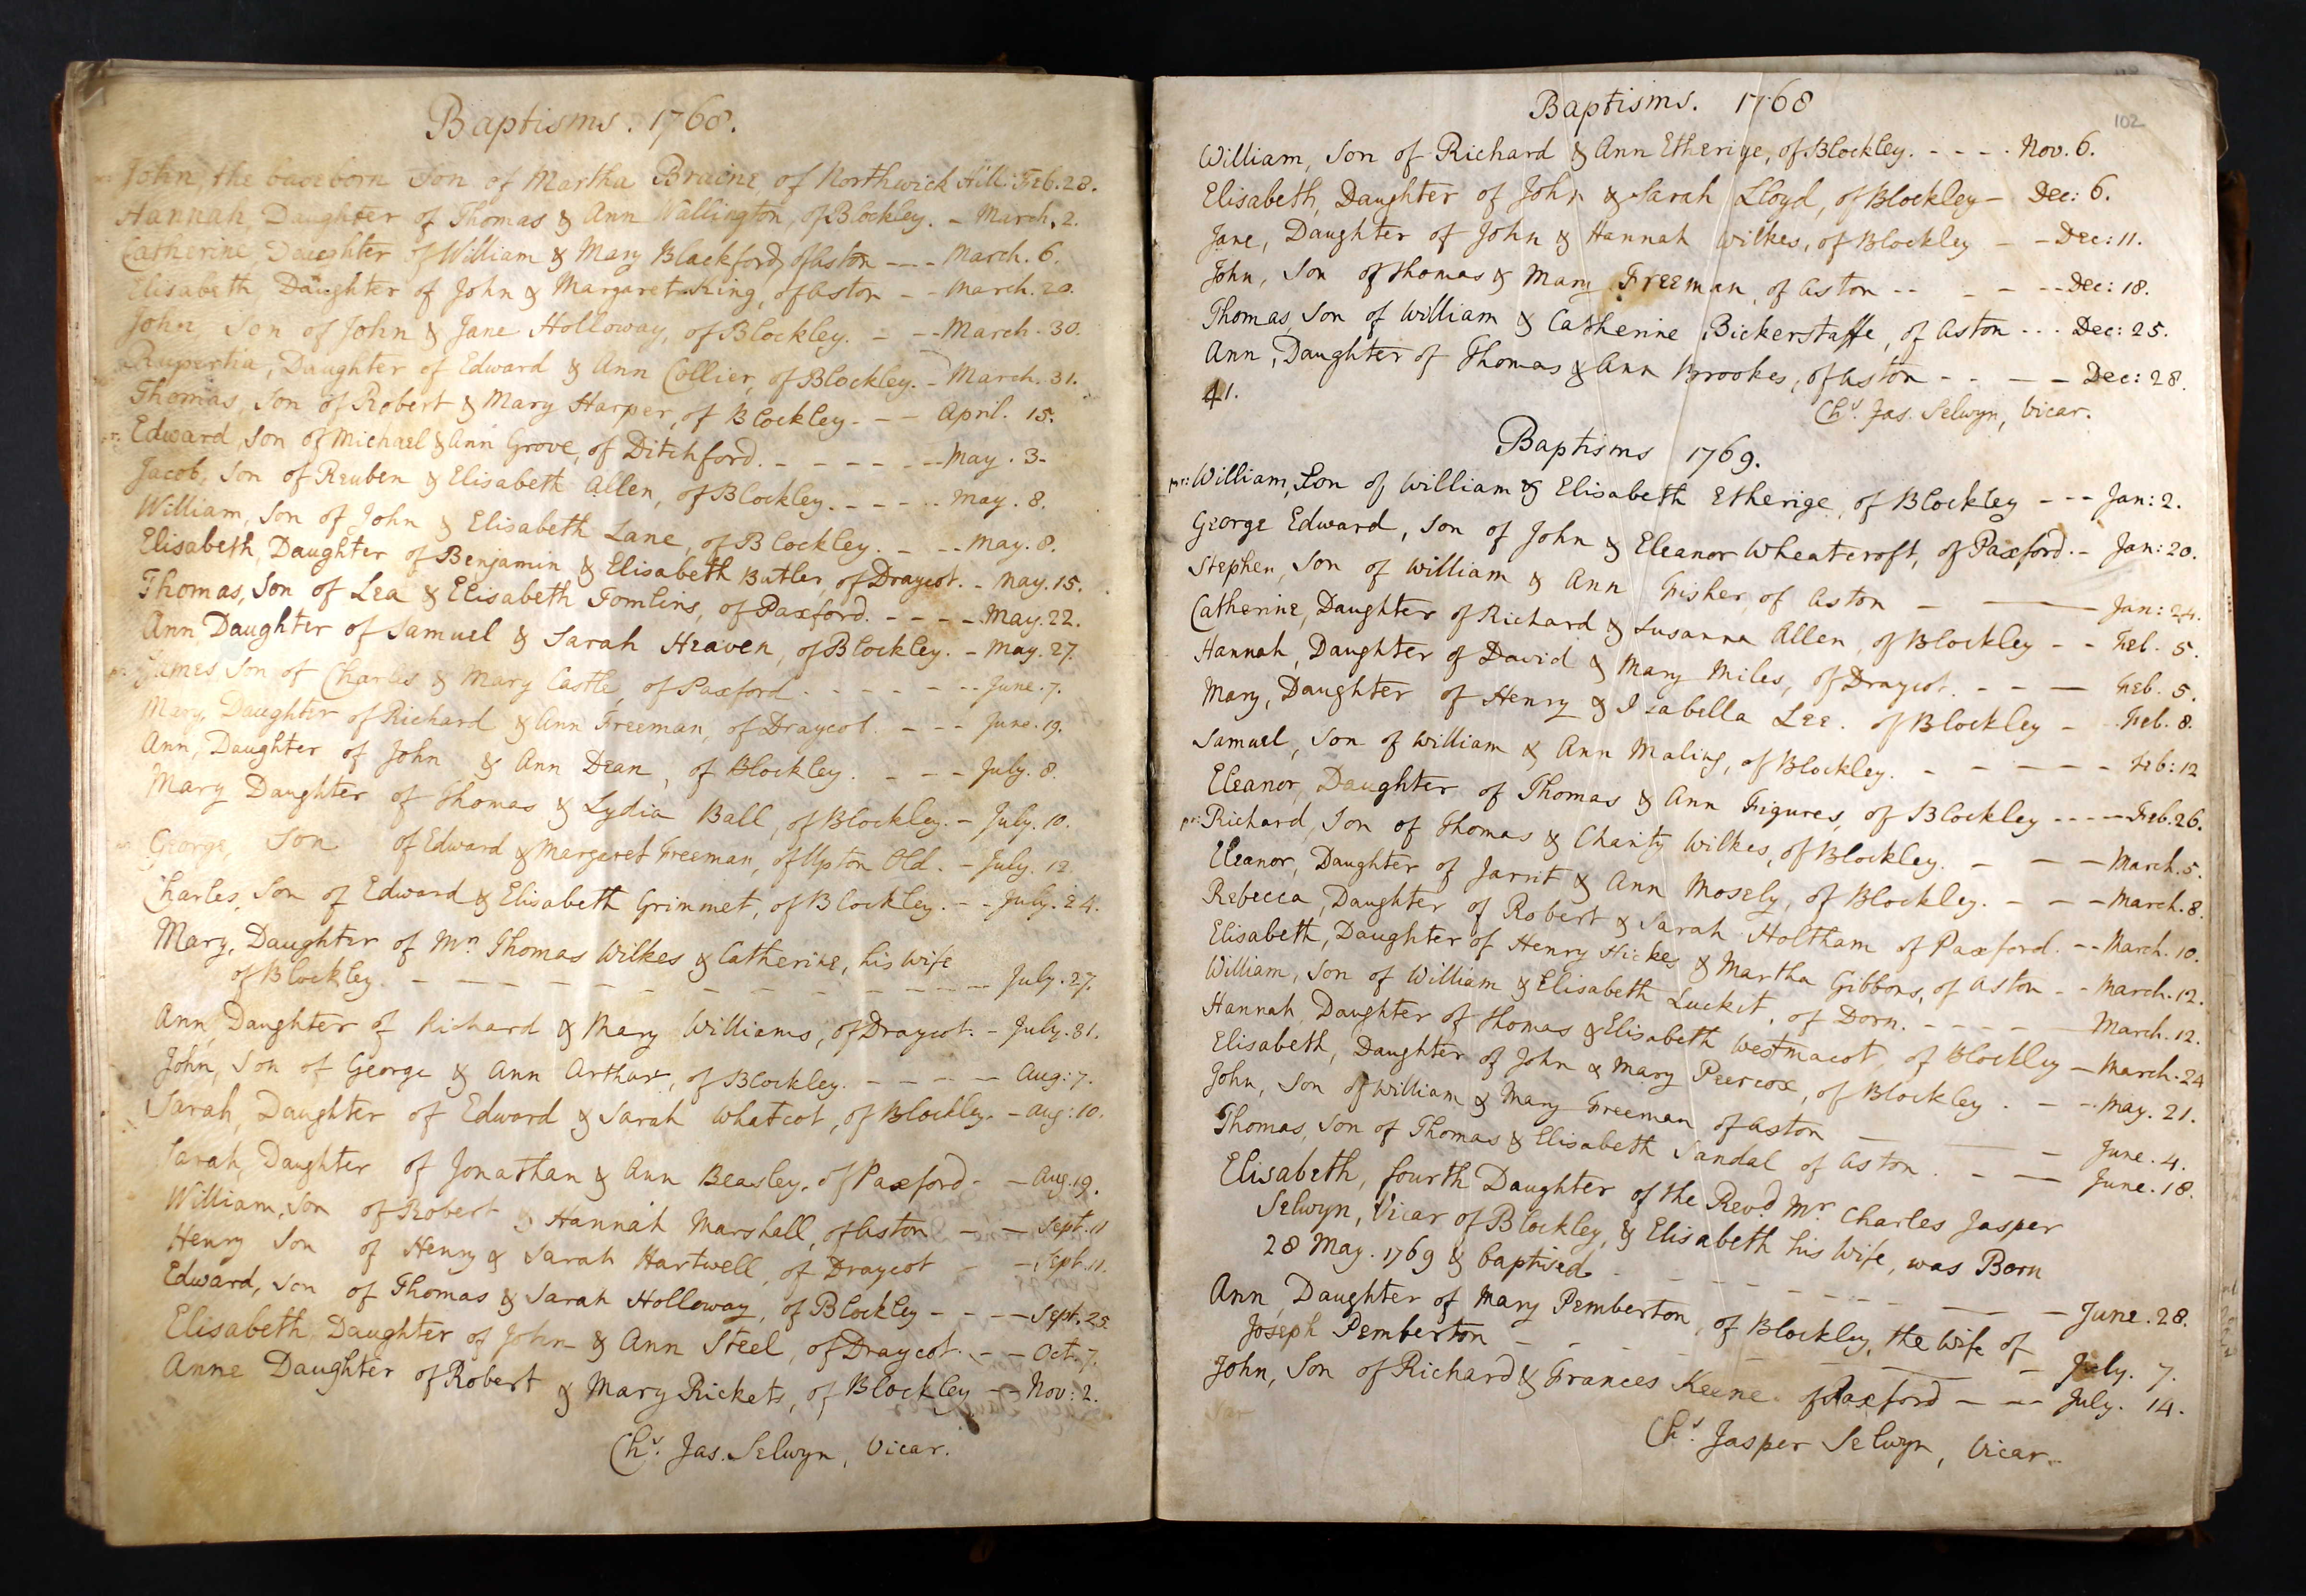 Baptisms. 1768.
John, the baseborn Son of Martha Braine, of Northwick Hill. Feb. 28.
Hannah, Daughter of Thomas & Ann Wallington, of Blockley. - March. 2.
Catherine, Daughter of William & Mary Blackford, of Aston --- March. 6.
Elisabeth, Daughter of John & Margaret King, of Aston - - March. 20.
John, Son of John & Jane Holloway, of Blockley. - -- March. 30.
Rupertia, Daughter of Edward & Ann Collier, of Blockley. - March. 31.
Thomas, Son of Robert & Mary Harper, of Blockley. - - April. 15.
Edward, Son of Michael & Ann Grove, of Ditchford. - - - - - -- May. 3-
Jacob, Son of Reuben & Elisabeth Allen, of Blockley. - - - -- May. 8.
William, Son of John & Elisabeth Lane, of Blockley. - -- May. 8.
Elisabeth, Daughter of Benjamin & Elisabeth Butler, of Draycot. - May. 15.
Thomas, Son of Lea & Elisabeth Tomlins, of Paxford. - - - - May. 22.
Ann Daughter of Samuel & Sarah Heaven, of Blockley. - May. 27.
James Son of Charles & Mary Castle, of Paxford. - - - - - -- June. 7.
Mary, Daughter of Richard & Ann Freeman, of Draycot. - -- June. 19.
Ann, Daughter of John & Ann Dean, of Blockley. - - - July. 8.
Mary Daughter of Thomas & Lydia Ball, of Blockley. - July. 10.
George, Son of Edward & Margaret Freeman, of Upton Old. - July. 12.
Charles, Son of Edward & Elisabeth Grimmet, of Blockley. - - July. 24.
Mary, Daughter of Mr. Thomas Wilkes & Catherine, his Wife
of Blockley. - - - - - - - - - - - - - July. 27.
Ann, Daughter of Richard & Mary Williams, of Draycot. - July. 31.
John, Son of George & Ann Arthur, of Blockley. - - - - - Aug: 7.
Sarah, Daughter of Edward & Sarah Whatcot, of Blockley. - Aug: 10.
Sarah, Daughter of Jonathan & Ann Beasley, of Paxford - - Aug. 19.
William, Son of Robert & Hannah Marshall, of Aston - - Sept. 11
Henry Son of Henry & Sarah Hartwell, of Draycot - - Sept. 11.
Edward, Son of Thomas & Sarah Holloway, of Blockley - - - Sept. 25
Elisabeth, Daughter of John & Ann Steel, of Draycot. - - Oct. 7.
Anne Daughter of Robert & Mary Rickets, of Blockley - - Nov: 2.
Chs. Jas. Selwyn, Vicar.
Baptisms. 1768
102
William, Son of Richard & Ann Etherige, of Blockley. - - - - Nov. 6.
Elisabeth, Daughter of John & Sarah Lloyd, of Blockley - Dec: 6.
Jane, Daughter of John & Hannah Wilkes, of Blockley - - Dec: 11.
John, Son of Thomas & Mary Freeman, of Aston -- - - -- Dec: 18.
Thomas, Son of William & Catherine Bickerstaffe, of Aston - - - Dec: 25.
Ann, Daughter of Thomas & Ann Brookes, of Aston - - - - Dec: 28.
41.
Chs. Jas. Selwyn, Vicar.
Baptisms 1769.
pr: William, Son of William & Elisabeth Etherige, of Blockley - - - Jan: 2.
George Edward, Son of John & Eleanor Wheatcroft, of Paxford. - Jan: 20.
Stephen, Son of William & Ann Fisher of Aston - - Jan: 24.
Catherine, Daughter of Richard & Susanna Allen, of Blockley - - Feb. 5.
Hannah, Daughter of David & Mary Miles, of Draycot. - - - Feb. 5.
Mary, Daughter of Henry & Isabella Lee. of Blockley - Feb. 8.
Samuel, Son of William & Ann Maling, of Blockley. - - - - - Feb: 12
Eleanor, Daughter of Thomas & Ann Figures, of Blockley - - - - Feb. 26.
pr: Richard, Son of Thomas & Charity Wilkes, of Blockley. - - - March. 5.
Eleanor, Daughter of Jarrit & Ann Mosely, of Blockley. - - - March. 8.
Rebecca, Daughter of Robert & Sarah Holtham of Paxford. -- March. 10.
Elisabeth, Daughter of Henry Hickes & Martha Gibbons, of Aston - - March. 12.
William, Son of William & Elisabeth Lucket, of Dorn. - - - - - March. 12.
Hannah, Daughter of Thomas & Elisabeth Westmacot, of Blockley - March. 24
Elisabeth, Daughter of John & Mary Peercox, of Blockley. - -- May. 21.
John, Son of William & Mary Freeman of Aston - - June. 4.
Thomas, Son of Thomas & Elisabeth Sandal of Aston. - - - June. 18.
Elisabeth, fourth Daughter of the Revd. Mr. Charles Jasper
Selwyn, Vicar of Blockley, & Elisabeth his Wife, was Born
28 May. 1769 & baptised. - - - - - - - June. 28.
Ann, Daughter of Mary Pemberton, of Blockley, the Wife of
Joseph Pemberton - - - - - - - - July. 7.
John, Son of Richard & Frances Keene. of Paxford - -- July. 14.
Chs. Jasper Selwyn, Vicar.